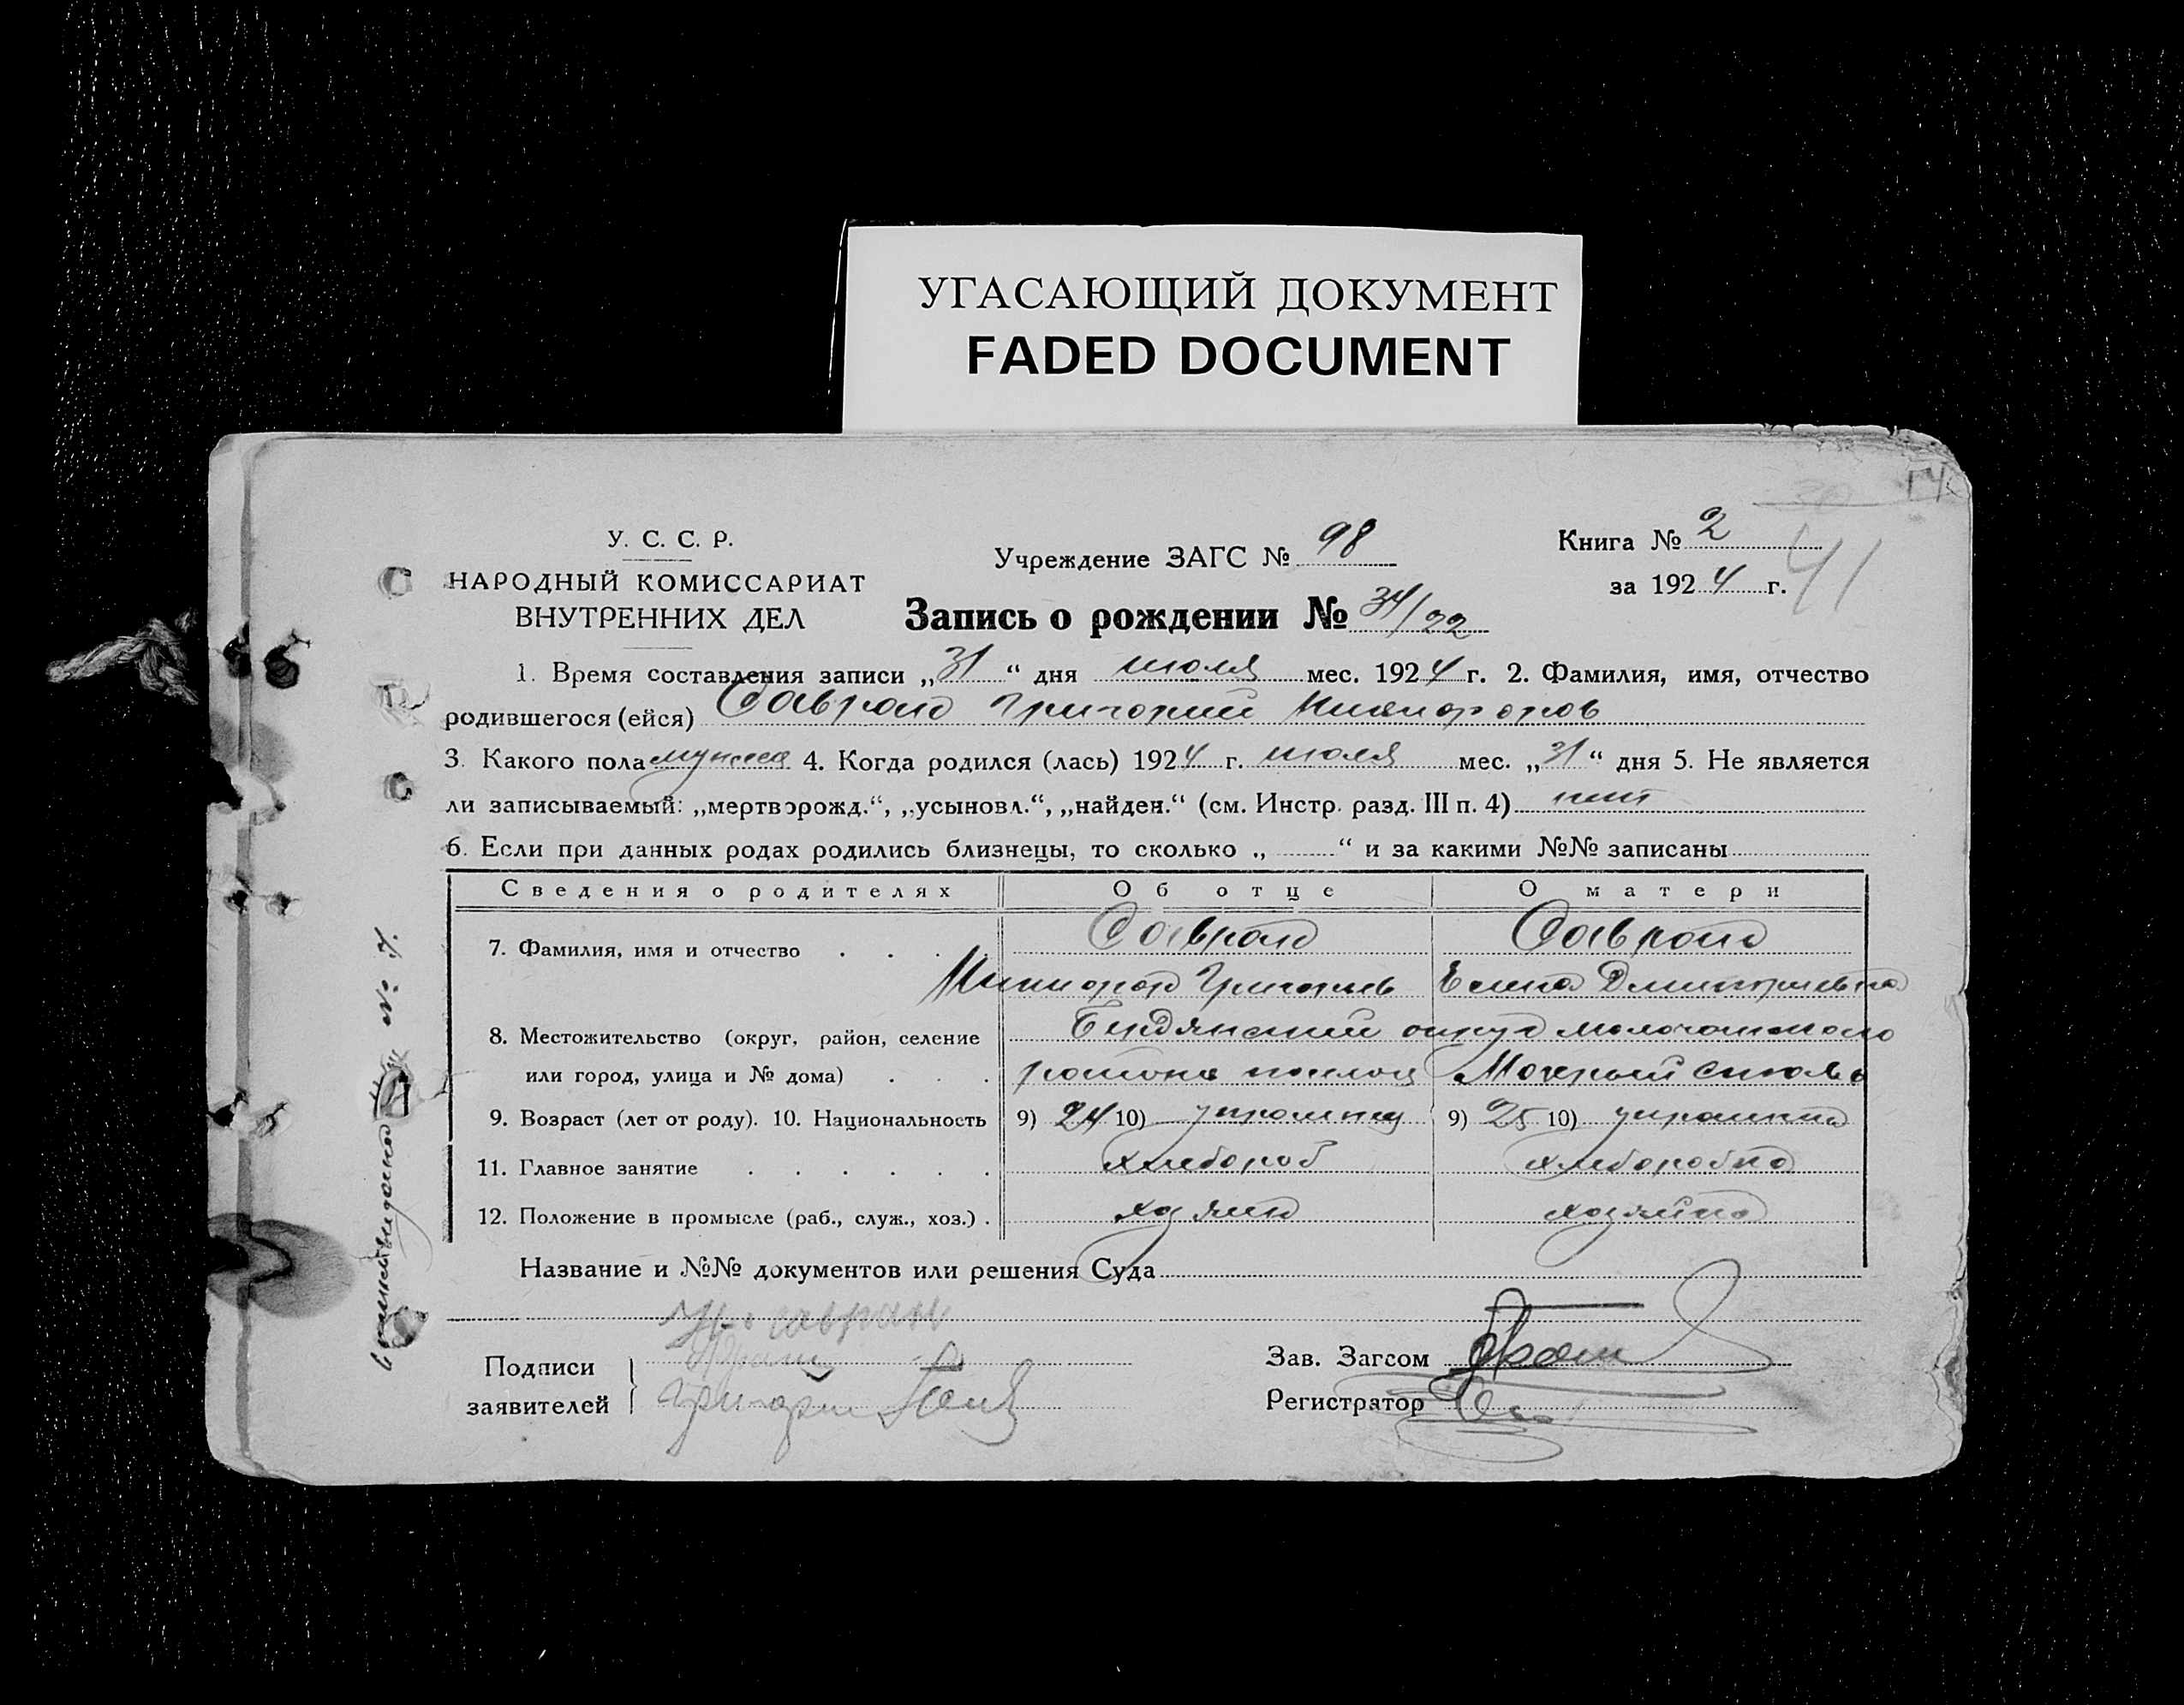 УГАСАЮЩИЙ ДОКУМЕНТ
FADED DOCUMENT
У. С. С. Р.
НАРОДНЫЙ КОМИССАРИАТ
ВНУТРЕННИХ ДЕЛ
Учреждение ЗАГС № 98
Книга № 2
за 1924 г.
41
Запись о рождении № 34/22
1. Время составления записи „31“ дня июля мес. 1924 г. 2. Фамилия, имя, отчество
родившегося (ейся) Саврань Григорий Никифоров
3. Какого пола мужска 4. Когда родился (лась) 1924 г. июля мес. „31“ дня 5. Не является
ли записываемый: „мертворожд.“, „усыновл.“, „найден.“ (см. Инстр. разд. III п. 4) нет
6. Если при данных родах родились близнецы, то сколько „ “ и за какими №№ записаны
Сведения о родителях Об отце О матери
7. Фамилия, имя и отчество Саврань Саврань
Никифор Григорьев Елена Дмитриевна
8. Местожительство (округ, район, селение округ
или город, улица и № дома) района
9. Возраст (лет от роду). 10. Национальность 9) 24 10) украинец 9) 25 10) украинка
11. Главное занятие хлебороб хлеборобка
12. Положение в промысле (раб., служ., хоз.) хозяин хозяйка
Название и №№ документов или решения Суда
саврань
Подписи
заявителей
Зав. Загсом
Регистратор
№ 4.